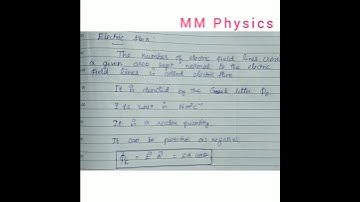 MM Physics
Electric flux
The number of electric field lines cross
a given area kept normal to the electric
field lines is called electric flux.
It is denoted by the Greek letter ΦE
Its unit is Nm²C⁻¹
It is a scalar quantity
It can be positive or negative
ΦE = E⃗ A⃗ = EA cosθ